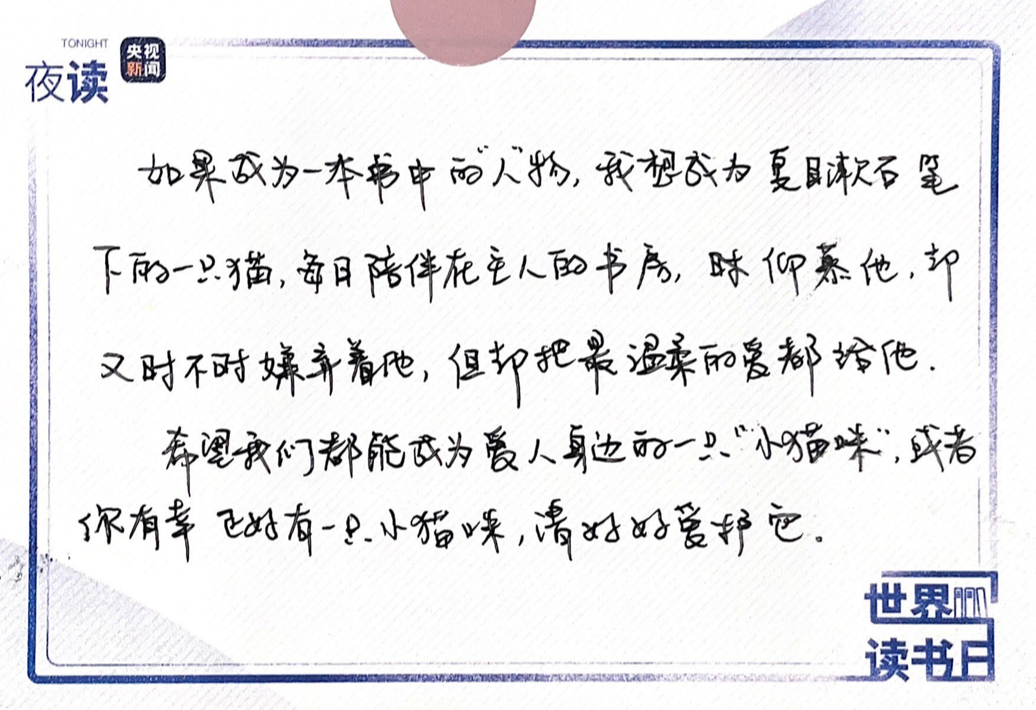 TONIGHT
夜读
央视
新闻
如果成为一本书中的“人”物,我想成为夏目漱石笔
下的一只猫,每日陪伴在主人的书房,时仰慕他,却
又时不时嫌弃着他,但却把最温柔的爱都给他.
希望我们都能成为爱人身边的一只“小猫咪”,或者
你有幸正好有一只小猫咪,请好好爱护它。
世界
读书日